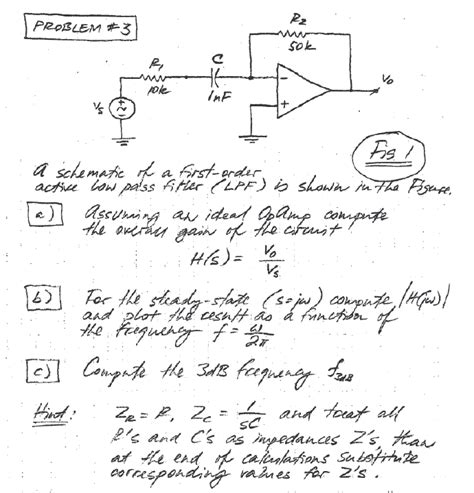 PROBLEM #3
R2
50k
R1
10k
C
1nF
Vs
Vo
−
+
Fig 1
A schematic of a first-order
active low pass filter (LPF) is shown in the Figure.
a) Assuming an ideal OpAmp compute
the overall gain of the circuit
H(s) = Vo/Vs
b) For the steady-state (s=jω) compute |H(jω)|
and plot the result as a function of
the frequency f = ω/2π
c) Compute the 3dB frequency f3dB
Hint: ZR = R, ZC = 1/sC and treat all
R's and C's as impedances Z's, than
at the end of calculations substitute
corresponding values for Z's.